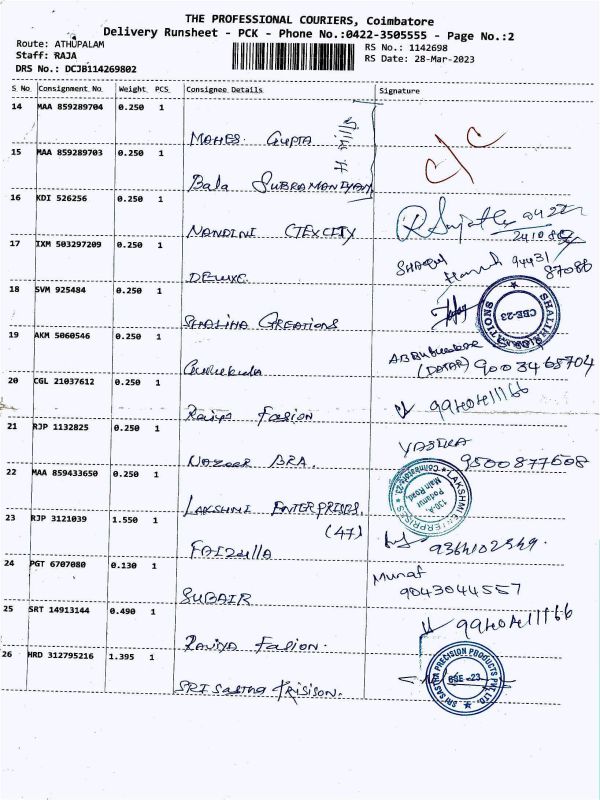 THE PROFESSIONAL COURIERS, Coimbatore
Delivery Runsheet - PCK - Phone No.:0422-3505555 - Page No.:2
Route: ATHUPALAM
Staff: RAJA
DRS No.: DCJB114269802
RS No.: 1142698
RS Date: 28-Mar-2023
S No Consignment No Weight PCS Consignee Details Signature
14 MAA 859289704 0.250 1
MAHES. GUPTA
15 MAA 859289703 0.250 1
Bala SUBRAMANIYAM
C/C
16 KDI 526256 0.250 1
NANDINI CTEXCITY
17 IXM 503297209 0.250 1
DELUXE
94431
87086
18 SVM 925484 0.250 1
SHALIHA CREATIONS
SHALIHA CREATIONS
CBE-23
19 AKM 5060546 0.250 1
9003465704
20 CGL 21037612 0.250 1
Raniya Fasion
21 RJP 1132825 0.250 1
NAZEER BRA.
9500877608
22 MAA 859433650 0.250 1
LAKSHMI ENTERPRISES.
(47)
LAKSHMI ENTERPRISES
130-A
Podanur
Main Road,
Coimbatore-23
23 RJP 3121039 1.550 1
FAIZulla
24 PGT 6707080 0.130 1
SUBAIR
Munaf
9043044557
25 SRT 14913144 0.490 1
Raniya Fasion.
26 HRD 312795216 1.395 1
SRI Sastha
SRI SASTHA PRECISION PRODUCTS PVT LTD.
CBE-23